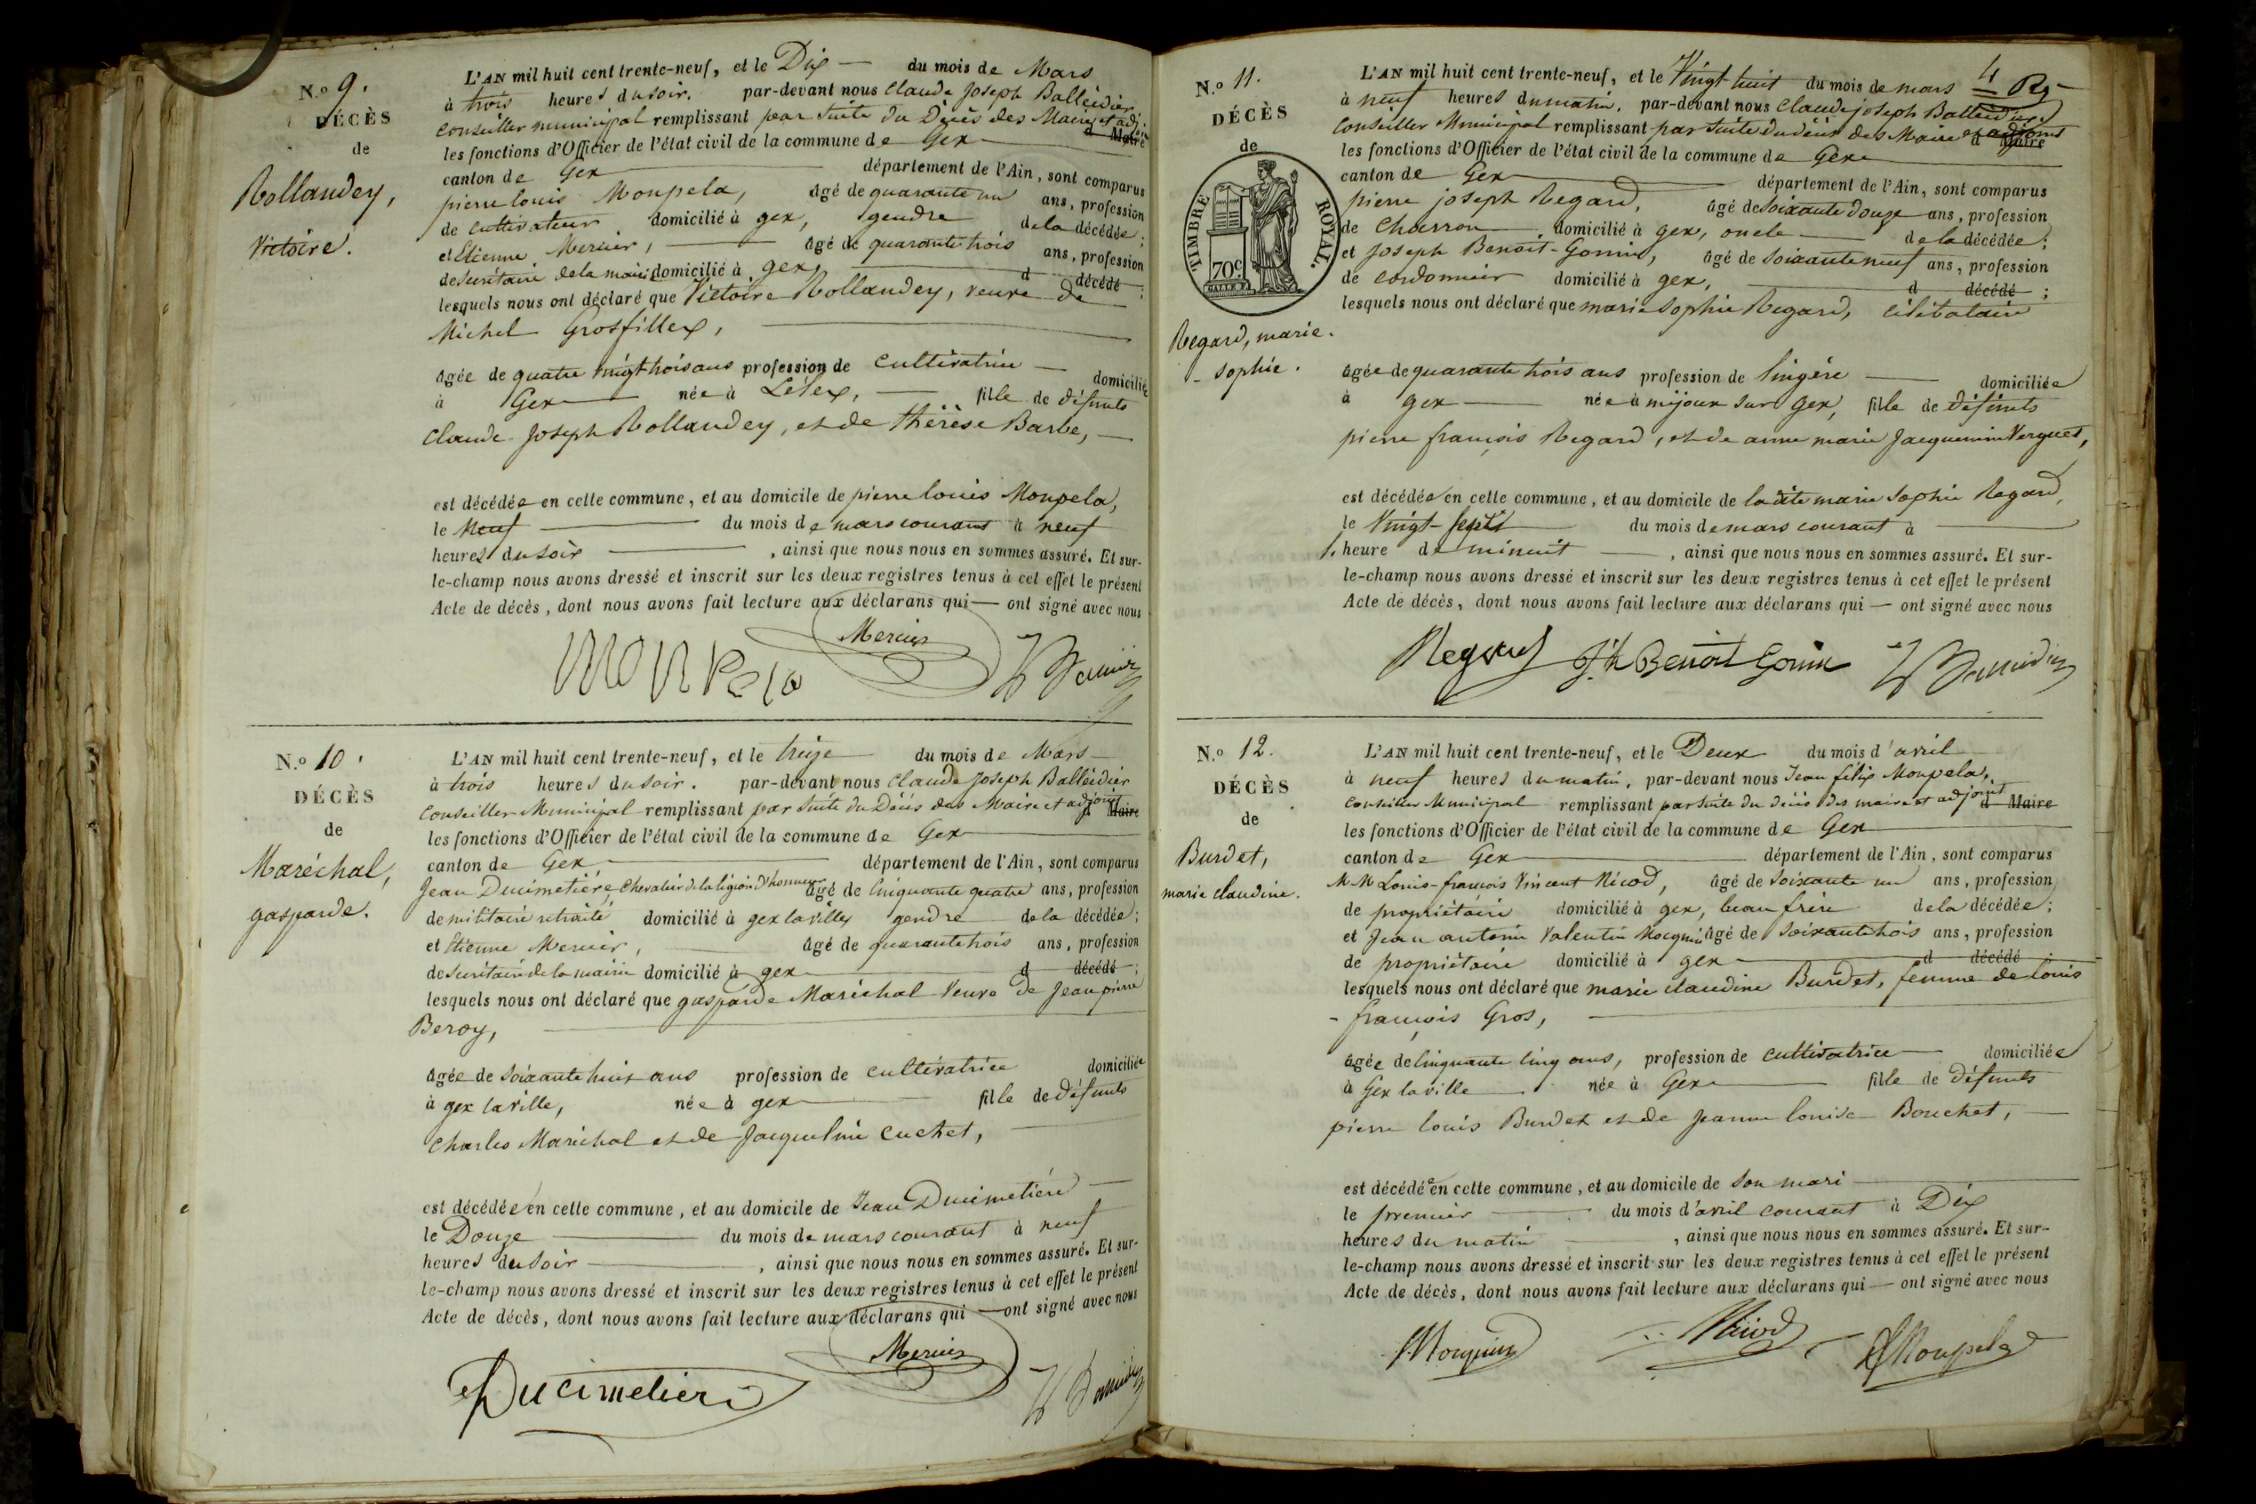 N.o 9.
DÉCÈS
de
Rollandey,
Victoire.
L'AN mil huit cent trente-neuf, et le Dix du mois de Mars
à trois heures du soir. par-devant nous Claude Joseph Balleidier
Conseiller municipal remplissant par suite du Décès des Maire et adj.
les fonctions d'Officier de l'état civil de la commune de Gex
canton de Gex département de l'Ain, sont comparus
pierre louis Monpela, âgé de quarante un ans, profession
de cultivateur domicilié à gex, gendre de la décédée;
et Etienne Mercier, âgé de quarante trois ans, profession
de Secrétaire de la mairie domicilié à gex, d décédé;
lesquels nous ont déclaré que Victoire Rollandey, veuve de
Michel Grosfillex,
âgée de quatre vingt trois ans profession de cultivatrice domiciliée
à Gex née à Lélex, fille de défunts
Claude Joseph Rollandey, et de thérèse Barbe,
est décédée en cette commune, et au domicile de pierre louis Monpela,
le Neuf du mois de mars courant à neuf
heures du soir, ainsi que nous nous en sommes assuré. Et sur-
le-champ nous avons dressé et inscrit sur les deux registres tenus à cet effet le présent
Acte de décès, dont nous avons fait lecture aux déclarans qui — ont signé avec nous
Monpela Mercier
N.o 10.
DÉCÈS
de
Maréchal,
gasparde.
L'AN mil huit cent trente-neuf, et le treize du mois de Mars
à trois heures du soir. par-devant nous Claude Joseph Balleidier
Conseiller Municipal remplissant par suite du Décès des Maire et adjoint d Maire
les fonctions d'Officier de l'état civil de la commune de Gex
canton de Gex département de l'Ain, sont comparus
Jean Ducimetière, Chevalier de la légion d'honneur âgé de Cinquante quatre ans, profession
de militaire retraité domicilié à gex la ville gendre de la décédée;
et Etienne Mercier, âgé de quarante trois ans, profession
de Secrétaire de la mairie domicilié à gex d décédé;
lesquels nous ont déclaré que gasparde Maréchal Veuve de Jean pierre
Beroy,
âgée de soixante huit ans profession de cultivatrice domiciliée
à gex la ville, née à gex fille de défunts
Charles Maréchal et de Jacqueline Cuchet,
est décédée en cette commune, et au domicile de Jean Ducimetière
le Douze du mois de mars courant à neuf
heures du soir, ainsi que nous nous en sommes assuré. Et sur-
le-champ nous avons dressé et inscrit sur les deux registres tenus à cet effet le présent
Acte de décès, dont nous avons fait lecture aux déclarans qui — ont signé avec nous
Ducimetière Mercier
N.o 11.
DÉCÈS
de
TIMBRE ROYAL.
70c
Regard, marie
- sophie.
4
L'AN mil huit cent trente-neuf, et le Vingt huit du mois de mars
à neuf heures du matin. par-devant nous Claude joseph Balleidier
Conseiller Municipal remplissant par suite du décès des Maire et adjoint d Maire
les fonctions d'Officier de l'état civil de la commune de Gex
canton de Gex département de l'Ain, sont comparus
pierre joseph Regard, âgé de soixante douze ans, profession
de Charron, domicilié à gex, oncle de la décédée;
et Joseph Benoit-Gonin, âgé de soixante neuf ans, profession
de cordonnier domicilié à gex, d décédé;
lesquels nous ont déclaré que marie Sophie Regard, célibataire
âgée de quarante trois ans profession de lingère domiciliée
à gex née à mijoux sur Gex, fille de défunts
pierre françois Regard, et de anne marie Jacquemine Verguet,
est décédée en cette commune, et au domicile de ladite marie Sophie Regard,
le Vingt-sept du mois de mars courant à
heure de minuit, ainsi que nous nous en sommes assuré. Et sur-
le-champ nous avons dressé et inscrit sur les deux registres tenus à cet effet le présent
Acte de décès, dont nous avons fait lecture aux déclarans qui — ont signé avec nous
Regard Jh Benoit Gonin
N.o 12.
DÉCÈS
de
Burdet,
marie claudine.
L'AN mil huit cent trente-neuf, et le Deux du mois d'avril
à neuf heures du matin, par-devant nous Jean félix Monpela,
Conseiller Municipal remplissant par suite du décès des maire et adjoint d Maire
les fonctions d'Officier de l'état civil de la commune de Gex
canton de Gex département de l'Ain, sont comparus
MM Louis-françois Vincent Nicod, âgé de soixante un ans, profession
de propriétaire domicilié à gex, beau frère de la décédée;
et Jean antoine Valentin âgé de soixante trois ans, profession
de propriétaire domicilié à gex d décédé;
lesquels nous ont déclaré que marie claudine Burdet, femme de louis
- françois Gros,
âgée de Cinquante cinq ans, profession de cultivatrice domiciliée
à Gex la ville née à Gex fille de défunts
pierre louis Burdet et de jeanne louise Bouchet,
est décédée en cette commune, et au domicile de son mari
le premier du mois d'avril courant à Dix
heures du matin, ainsi que nous nous en sommes assuré. Et sur-
le-champ nous avons dressé et inscrit sur les deux registres tenus à cet effet le présent
Acte de décès, dont nous avons fait lecture aux déclarans qui — ont signé avec nous
Nicod Monpela